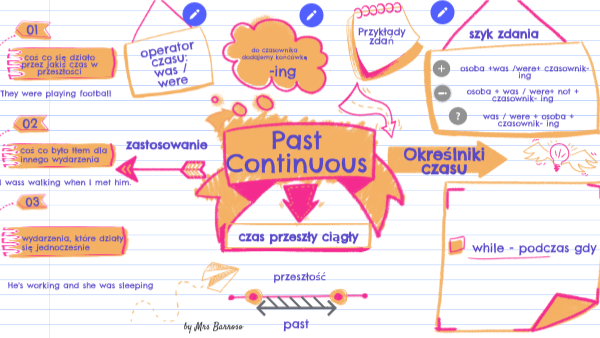 01
coś co się działo
przez jakiś czas w
przeszłości
They were playing football
02
coś co było tłem dla
innego wydarzenia
I was walking when I met him.
03
wydarzenia, które działy
się jednocześnie
He's working and she was sleeping
operator
czasu:
was /
were
do czasownika
dodajemy końcówkę
-ing
Przykłady
zdań
szyk zdania
+
osoba +was /were+ czasownik-
ing
-
osoba + was / were+ not +
czasownik- ing
?
was / were + osoba +
czasownik- ing
zastosowanie
Past
Continuous
czas przeszły ciągły
Określniki
czasu
while - podczas gdy
przeszłość
past
by Mrs Barroso